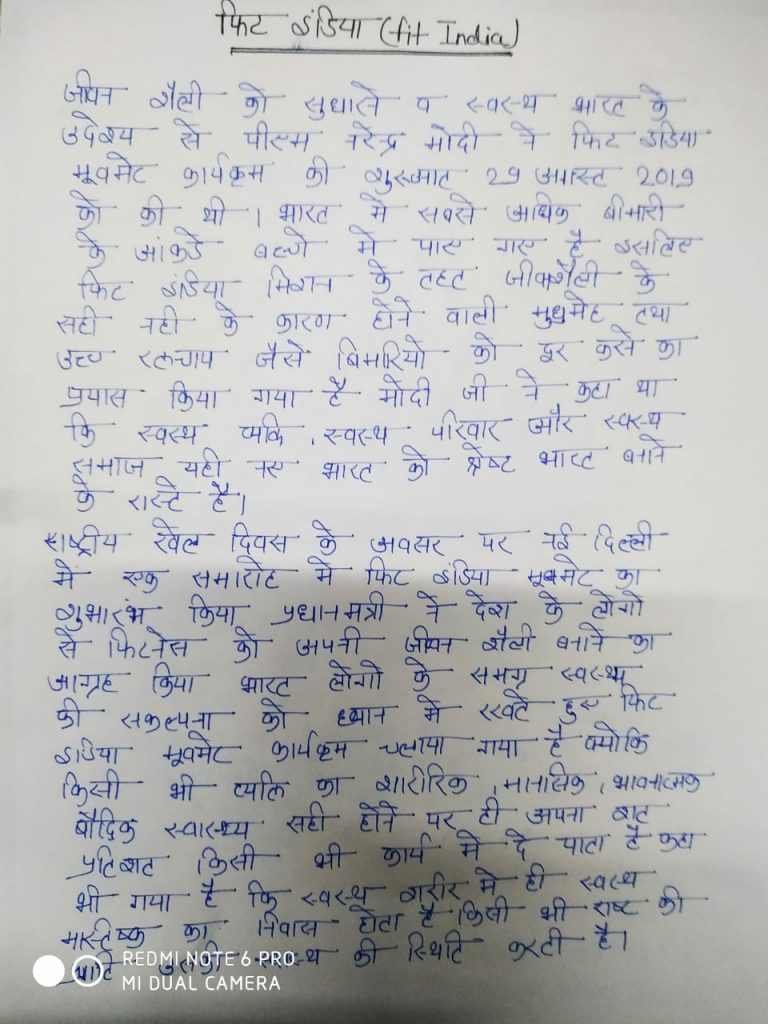 फिट इंडिया (fit India)
जीवन शैली को सुधारने व स्वस्थ भारत के
उदेश्य से पीएम नरेन्द्र मोदी ने फिट इंडिया
मूवमेट कार्यक्रम की शुरुआत 29 अगस्त 2019
को की थी। भारत में सबसे अधिक बीमारी
के आंकडे बच्चो में पाए गए है इसलिए
फिट इंडिया मिशन के तहत जीवनशैली के
सही नही के कारण होने वाली मुधुमेह तथा
उच्च रक्तचाप जैसे बिमारियो को दूर करने का
प्रयास किया गया है मोदी जी ने कहा था
कि स्वस्थ व्यक्ति, स्वस्थ परिवार और स्वस्थ
समाज यही नए भारत को श्रेष्ट भारत बनाने
के रास्ते है।
राष्ट्रीय खेल दिवस के अवसर पर नई दिल्ली
में एक समारोह में फिट इंडिया मूवमेट का
शुभारंभ किया प्रधानमत्री ने देश के लोगो
से फिटनेस को अपनी जीवन शैली बनाने का
आग्रह किया भारत लोगो के समग्र स्वस्थ्य
की सकल्पना को ध्यान में रखते हुए फिट
इंडिया मूवमेट कार्यक्रम चलाया गया है क्योकि
किसी भी व्यक्ति का शारीरिक, मानसिक, भावनात्मक
बौद्दिक स्वास्थ्य सही होने पर ही अपना शत
प्रतिशत किसी भी कार्य में दे पाता है कहा
भी गया है कि स्वस्थ शरीर में ही स्वस्थ
मास्तिष्क का निवास होता है किसी भी राष्ट की
उसकी की स्थिति करती है।
REDMI NOTE 6 PRO
MI DUAL CAMERA